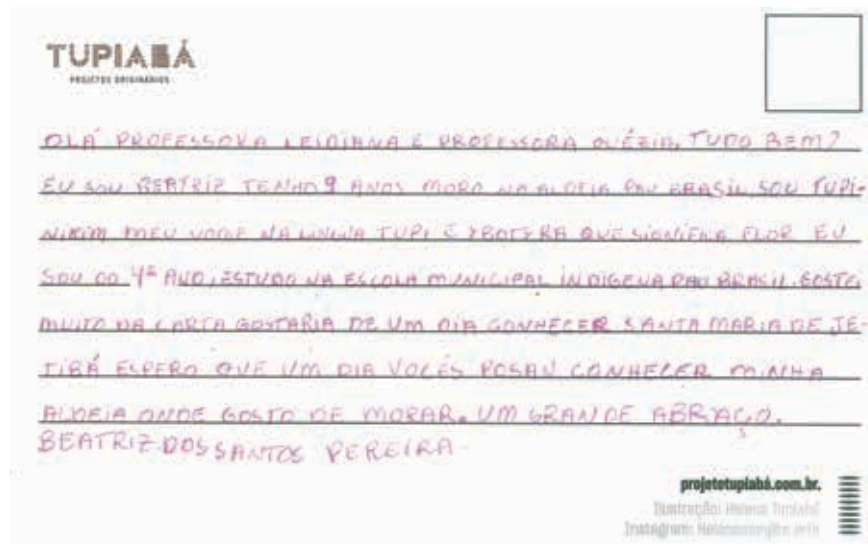 TUPIABÁ
PROJETOS ORIGINÁRIOS
OLÁ PROFESSORA LEIDIANA E PROFESSORA QUÉZIA, TUDO BEM?
EU SOU BEATRIZ TENHO 9 ANOS MORO NA ALDEIA PAU BRASIL SOU TUPI-
NIKIM MEU NOME NA LINGUA TUPI É YBOTYRA QUE SIGNIFICA FLOR EU
SOU DO 4º ANO, ESTUDO NA ESCOLA MUNICIPAL INDIGENA PAU BRASIL. GOSTEI
MUITO DA CARTA GOSTARIA DE UM DIA CONHECER SANTA MARIA DE JE-
TIBÁ ESPERO QUE UM DIA VOCÊS POSAN CONHECER MINHA
ALDEIA ONDE GOSTO DE MORAR. UM GRANDE ABRAÇO.
BEATRIZ DOS SANTOS PEREIRA
projetotupiabá.com.br.
Ilustração: Helena Tupiabá
Instagram: